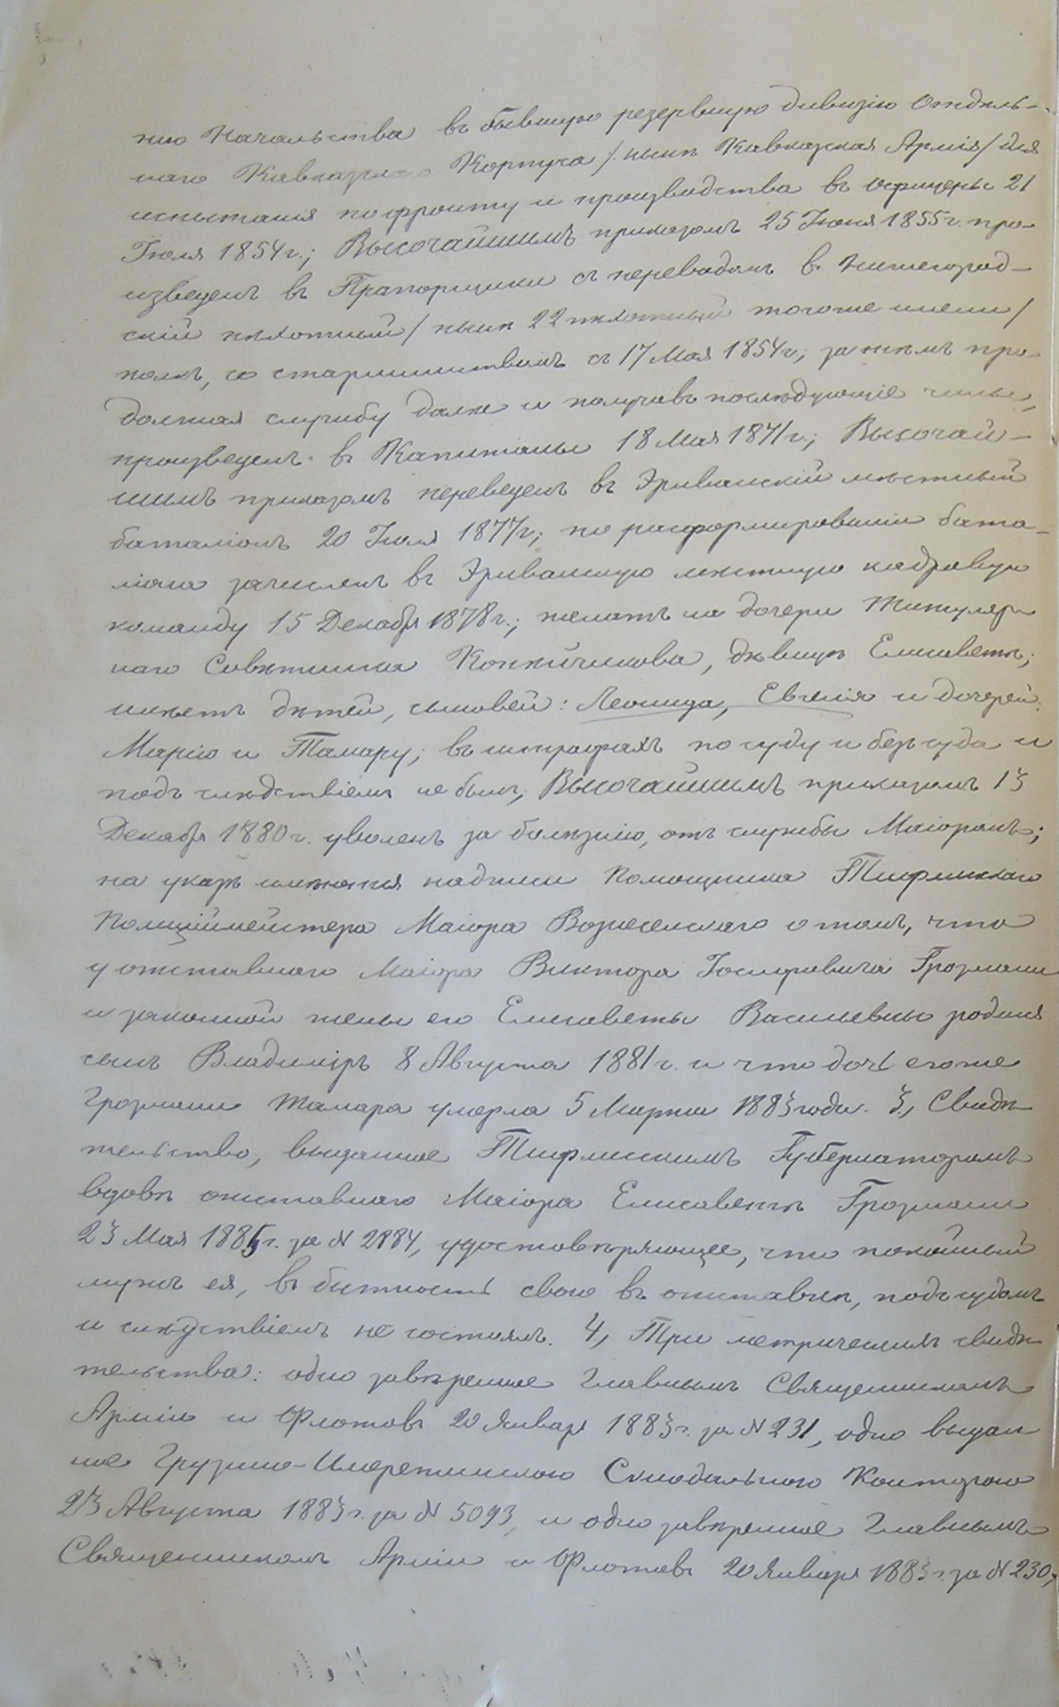 нію Начальства въ бывшую резервную дивизію Отдѣль-
наго Кавказскаго Корпуса /нынѣ Кавказская Армія/ для
испытанія по фронту и производства въ офицеры 21
Іюля 1854 г.; Высочайшимъ приказомъ 25 Іюня 1855 г. про-
изведенъ въ Прапорщики съ переводомъ въ Нижегород-
скій пѣхотный /нынѣ 22 пѣхотный тогоже имени/
полкъ, со старшинствомъ съ 17 Мая 1854 г.; за тѣмъ про-
должая службу далѣе и получивъ послѣдующіе чины,
произведенъ въ Капитаны 18 Мая 1871 г.; Высочай-
шимъ приказомъ переведенъ въ Эриванскій мѣстный
баталіонъ 20 Іюля 1877 г.; по расформированіи бата-
ліона зачисленъ въ Эриванскую мѣстную кадровую
команду 15 Декабря 1878 г.; женатъ на дочери Титуляр-
наго Совѣтника дѣвицѣ Елисаветѣ;
имѣетъ дѣтей, сыновей: Леонида, Евгенія и дочерей:
Марію и Тамару; въ штрафахъ по суду и безъ суда и
подъ слѣдствіемъ не былъ; Высочайшимъ приказомъ 13
Декабря 1880 г. уволенъ за болѣзнію, отъ службы Маіоромъ;
на указѣ имѣются надписи Помощника Тифлисскаго
Полиційместера Маіора Вознесенскаго о томъ, что
у отставнаго Маіора Виктора Іосифовича Грозмани
и законной жены его Елисаветы Васильевны родился
сынъ Владиміръ 8 Августа 1881 г. и что дочь егоже
Грозмани Тамара умерла 5 Марта 1883 года. 3, Свидѣ-
тельство, выданное Тифлисскимъ Губернаторомъ
вдовѣ отставнаго Маіора Елисаветѣ Грозмани
23 Мая 1885 г. за N 2884, удостовѣряющее, что покойный
мужъ ея, въ бытность свою въ отставкѣ, подъ судомъ
и слѣдствіемъ не состоялъ. 4, Три метрическихъ свидѣ-
тельства: одно завѣренное Главнымъ Священникомъ
Арміи и Флотовъ 20 Января 1883 г. за N 231, одно выдан-
ное Грузино-Имеретинскою Синодальною Конторою
23 Августа 1883 г. за N 5093, и одно завѣренное Главнымъ
Священникомъ Арміи и Флотовъ 20 Января 1883 г. за N 230,